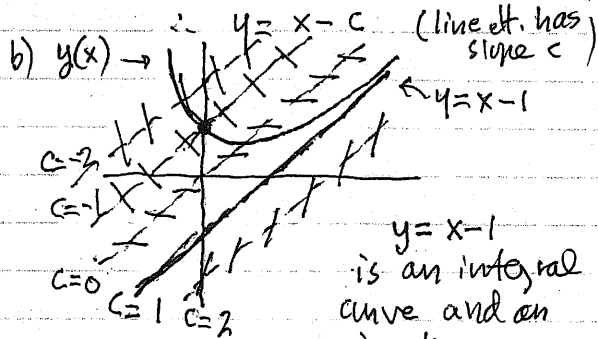 ∴ y = x - c
(line elt. has
slope c)
b) y(x) →
← y = x - 1
C=-2
C=-1
C=0
C=1
C=2
y = x-1
is an integral
curve and an